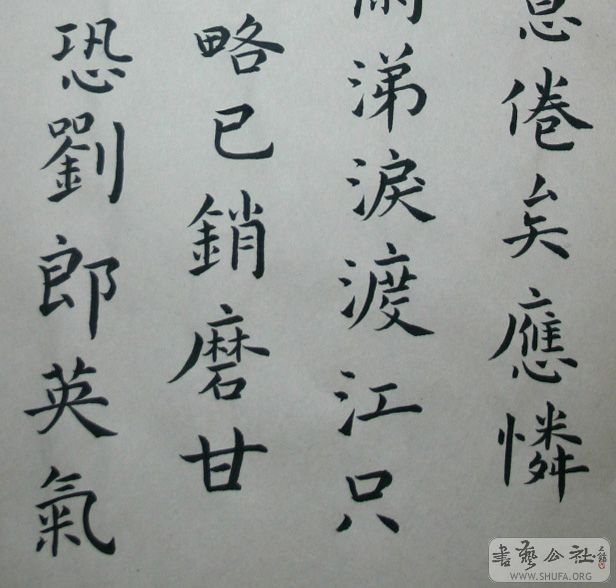 息倦矣應憐
涕淚渡江只
略已銷磨甘
恐劉郎英氣
書藝公社
WWW.SHUFA.ORG